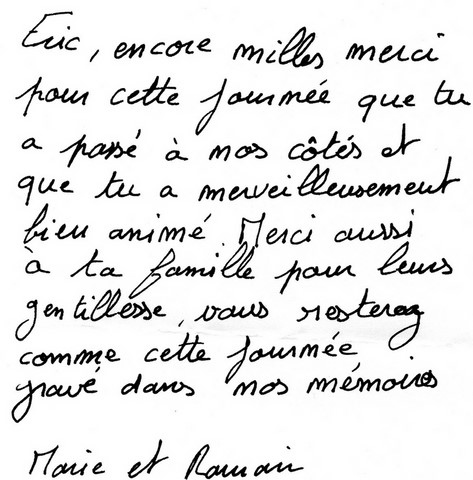 Eric, encore milles merci
pour cette journée que tu
a passé à nos côtés et
que tu a merveilleusement
bien animé. Merci aussi
à ta famille pour leurs
gentillesse, vous resterez
comme cette journée
gravé dans nos mémoires
Marie et Romain